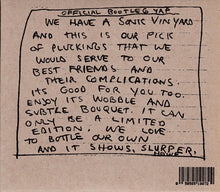 OFFICIAL BOOTLEG YAP
WE HAVE A SONIC VINYARD
AND THIS IS OUR PICK
OF PLUCKINGS THAT WE
WOULD SERVE TO OUR
BEST FRIENDS AND
THEIR COMPLICATIONS.
ITS GOOD FOR YOU TOO.
ENJOY ITS WOBBLE AND
SUBTLE BOUQUET. IT CAN
ONLY BE A LIMITED
EDITION. WE LOVE
TO BOTTLE OUR OWN
AND IT SHOWS, SLURPER.